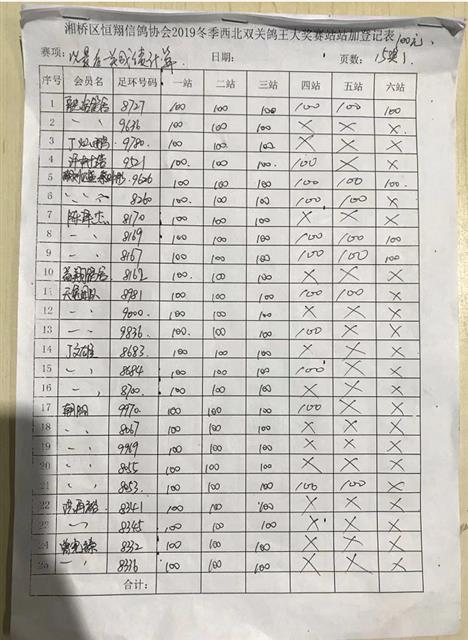 湘桥区恒翔信鸽协会2019冬季西北双关鸽王大奖赛站站加登记表 100元
赛项: 以最后一关成绩计算. 日期: 页数: 15奖1
序号 会员名 足环号码 一站 二站 三站 四站 五站 六站
1 8727 100 100 100 100 100 100
2 〃 9636 100 100 100 × × ×
3 9780 100 100 100 × × ×
4 9521 100 100 100 100 × ×
5 9626 100 100 100 100 100 100
6 〃 8260 100 100 100 100 100 ×
7 陈泽杰 8170 100 100 100 × × ×
8 〃 8169 100 100 100 100 100 100
9 〃 8167 100 100 100 100 100 100
10 8162 100 100 100 × × ×
11 8981 100 100 100 100 100 ×
12 〃 9000 100 100 100 × × ×
13 〃 9836 100 100 100 100 × ×
14 8683 100 100 100 × × ×
15 〃 8684 100 100 100 100 × ×
16 〃 8700 100 100 100 × × ×
17 9970 100 100 100 100 × ×
18 〃 8067 100 100 100 × × ×
19 〃 9969 100 100 100 × × ×
20 〃 8055 100 100 100 × × ×
21 〃 8053 100 100 100 100 100 ×
22 8341 100 100 100 × × ×
23 〃 8345 100 100 100 × × ×
24 8332 100 100 100 × × ×
25 〃 8336 100 100 100 × × ×
合计: